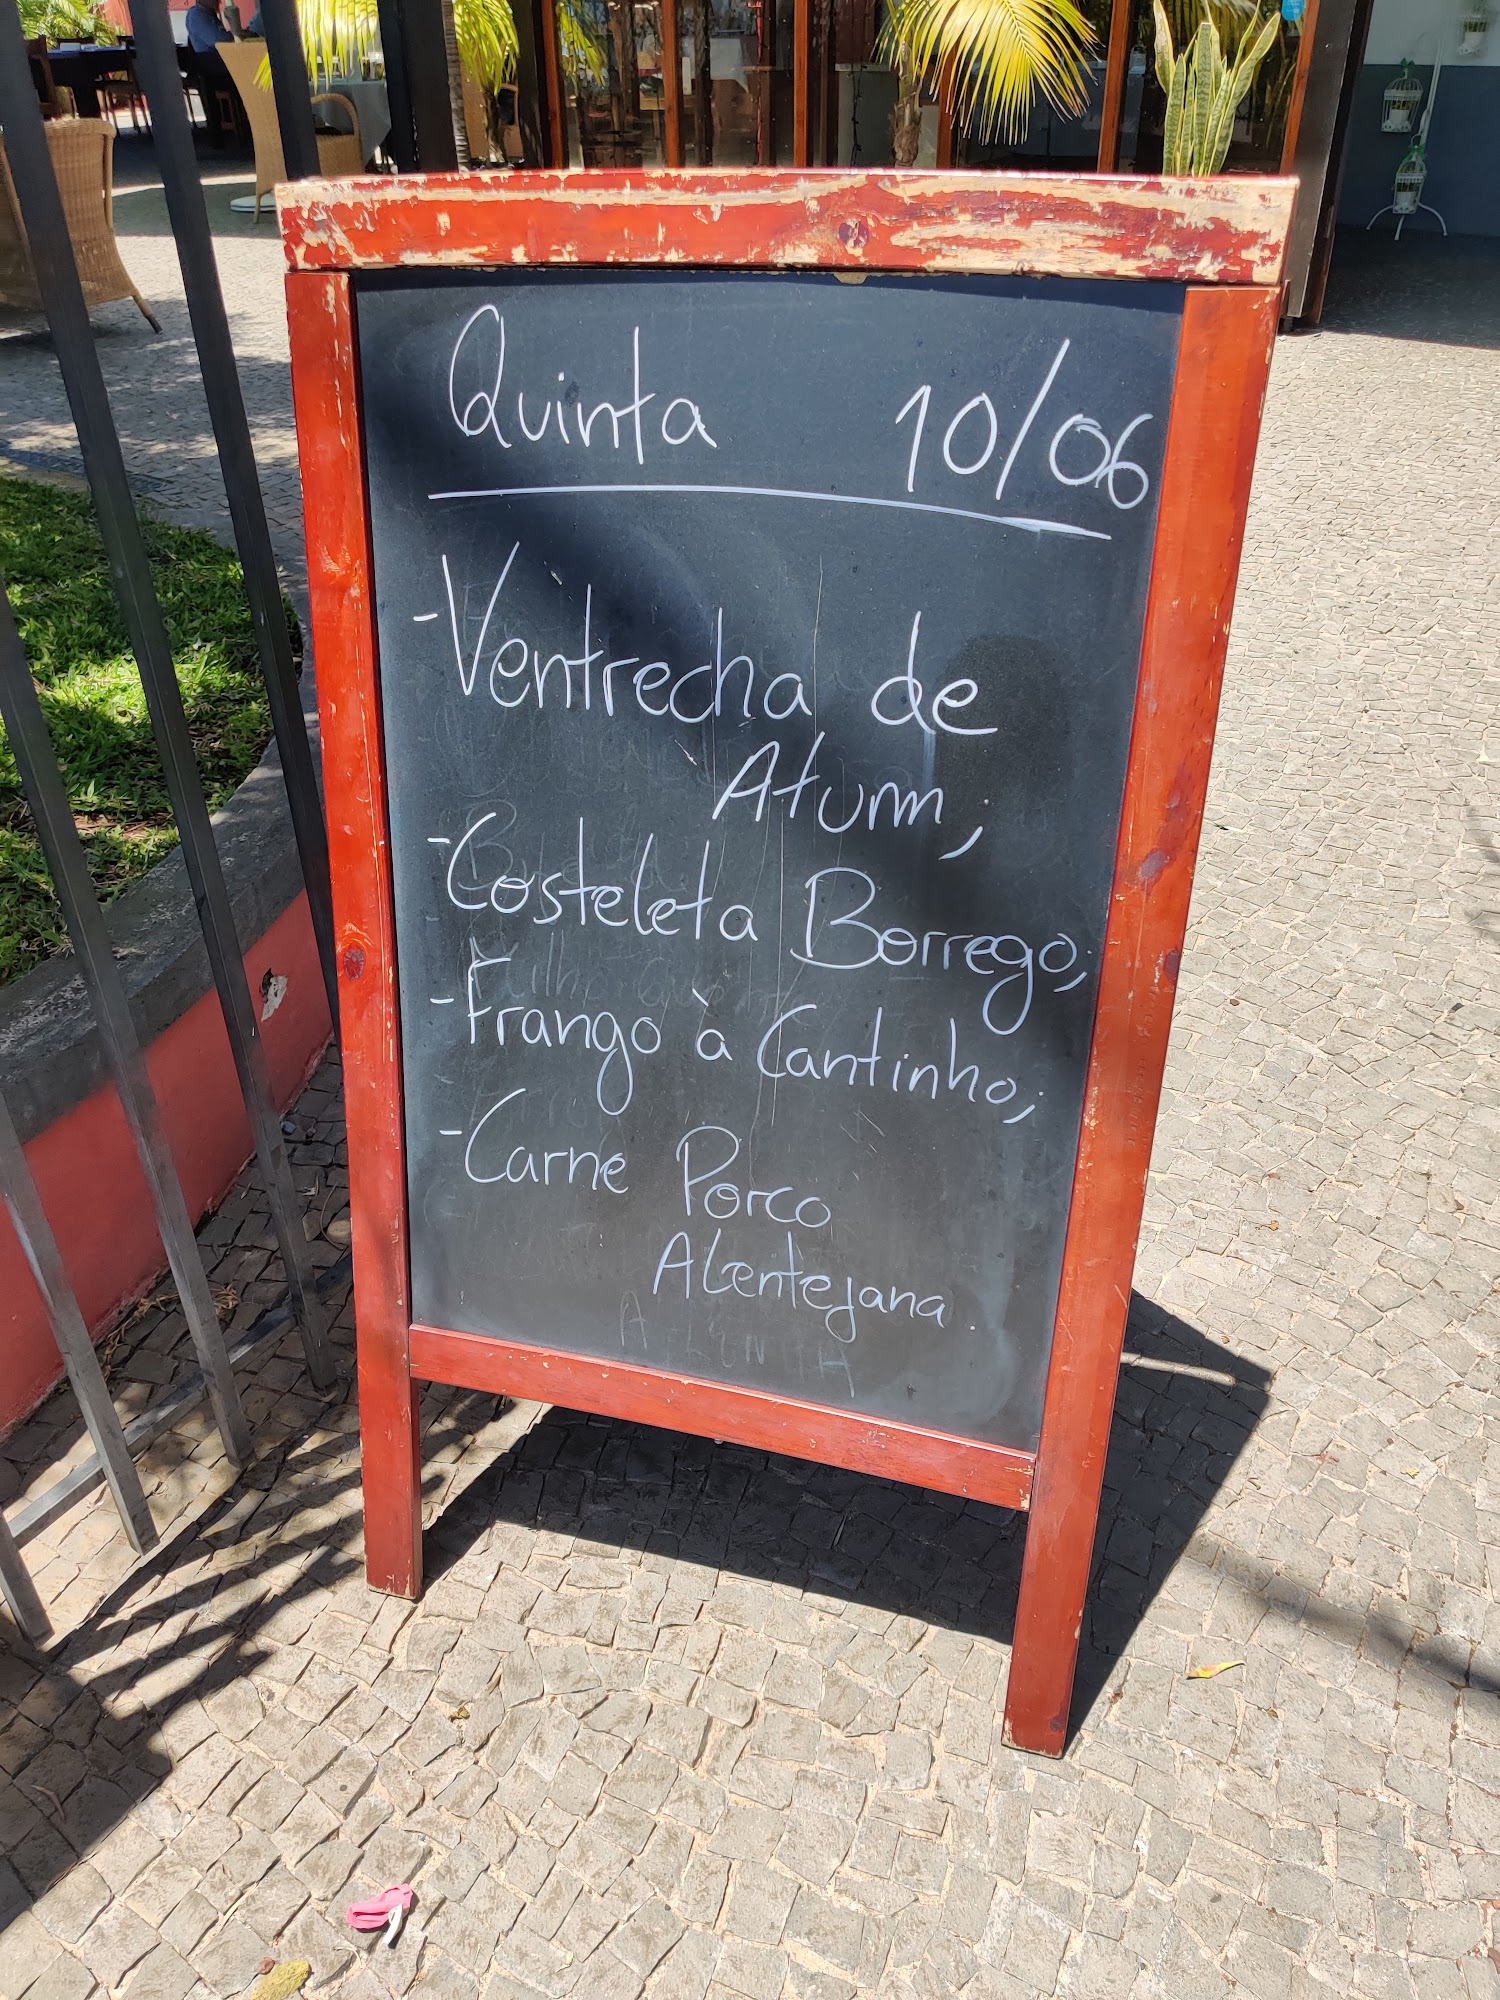 Quinta 10/06
-Ventrecha de
Atum;
-Costeleta Borrego;
-Frango à Cantinho;
-Carne Porco
Alentejana.